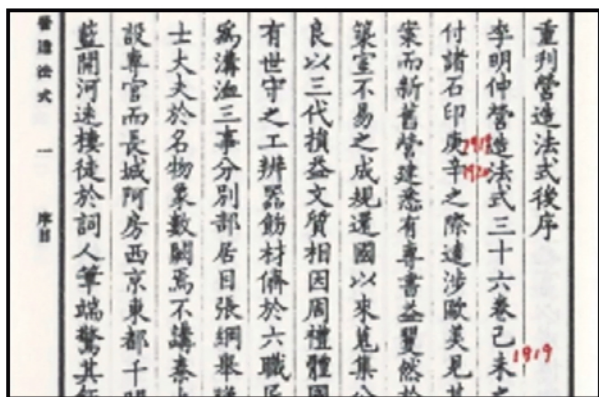 重刋營造法式後序
李明仲營造法式三十六卷己未之
1919
付諸石印庚辛之際遠涉歐美見其
1920
案而新舊營建悉有專書益瞿然於
築室不易之成規還國以來蒐集公
良以三代損益文質相因周禮體國
有世守之工辨器飭材儕於六職匠
爲溝洫三事分別部居目張綱舉
士大夫於名物象數闕焉不講秦
設專官而長城阿房西京東都千門
藍開河迷樓徒於詞人筆端驚其
營造法式 一 序目